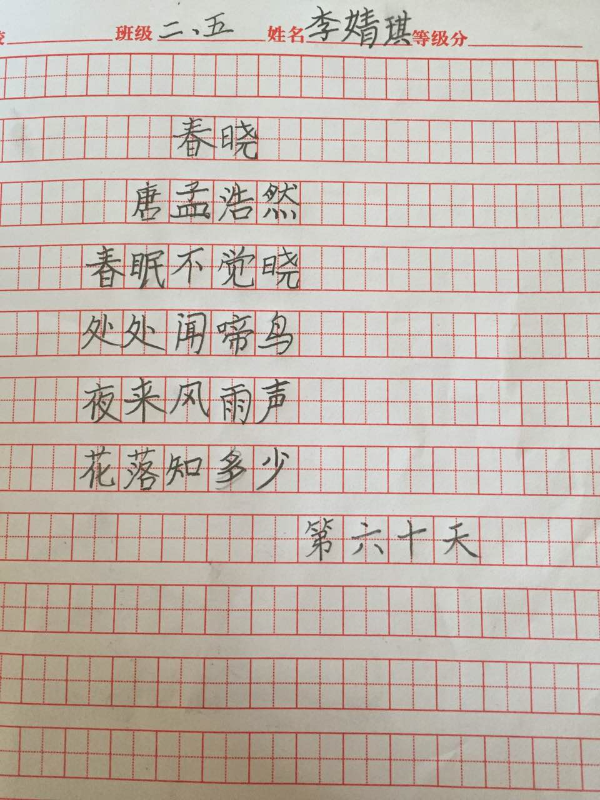 班级 二、五 姓名 李婧琪 等级分
春晓
唐孟浩然
春眠不觉晓
处处闻啼鸟
夜来风雨声
花落知多少
第六十天